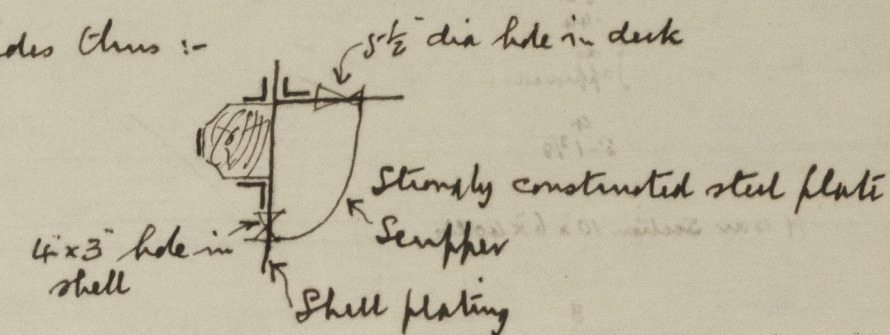 des thus :-
5½" dia hole in deck
Strongly constructed steel plate
Scupper
4" x 3" hole in
shell
Shell plating